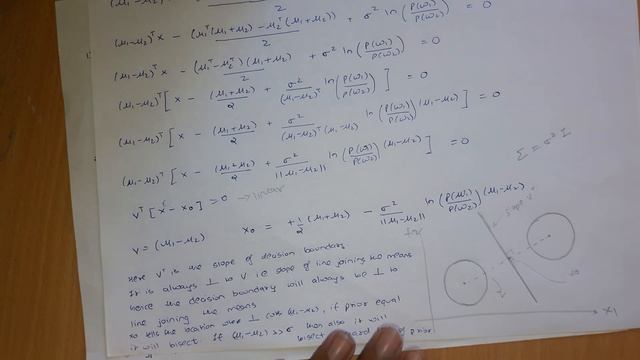 (μ₁-μ₂)ᵀx - (μ₁ᵀ(μ₁+μ₂) - μ₂ᵀ(μ₁+μ₂))/2 + σ² ln(P(ω₁)/P(ω₂)) = 0
(μ₁-μ₂)ᵀx - (μ₁ᵀ-μ₂ᵀ)(μ₁+μ₂)/2 + σ² ln(P(ω₁)/P(ω₂)) = 0
(μ₁-μ₂)ᵀ[x - (μ₁+μ₂)/2 + σ²/(μ₁-μ₂)ᵀ ln(P(ω₁)/P(ω₂))] = 0
(μ₁-μ₂)ᵀ[x - (μ₁+μ₂)/2 + σ²/((μ₁-μ₂)ᵀ(μ₁-μ₂)) ln(P(ω₁)/P(ω₂))(μ₁-μ₂)] = 0
(μ₁-μ₂)ᵀ[x - (μ₁+μ₂)/2 + σ²/||μ₁-μ₂|| ln(P(ω₁)/P(ω₂))(μ₁-μ₂)] = 0
Σ = σ² I
Vᵀ[x - x₀] = 0 → linear
V = (μ₁-μ₂) x₀ = +½(μ₁+μ₂) - σ²/||μ₁-μ₂|| ln(P(ω₁)/P(ω₂))(μ₁-μ₂)
Here Vᵀ is the slope of decision boundary
It is always ⊥ to V i.e slope of line joining two means
hence the decision boundary will always be ⊥ to
line joining the means
x₀ tells the location over ⊥ (μ₁-μ₂), if prior equal
it will bisect. If (μ₁-μ₂) >> σ then also it will
bisect prior
slope V
x₁